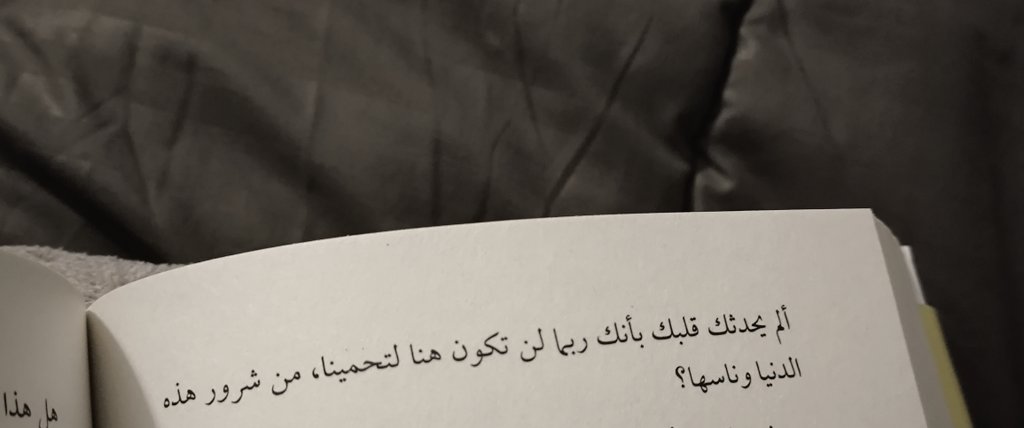 ألم يحدثك قلبك بأنك ربما لن تكون هنا لتحمينا، من شرور هذه
الدنيا وناسها؟
هل هذا